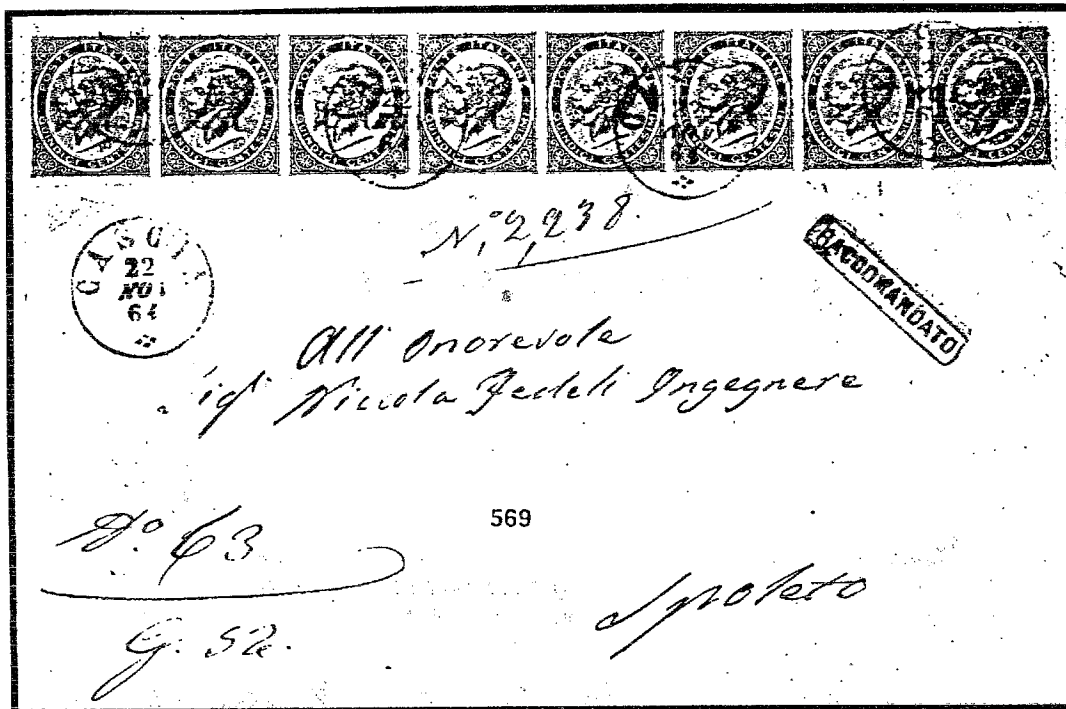 POSTE ITALIANE QUINDICI CENTESIMI
N.º 2,238.
CASCIA
22
NOV
64
RACCOMANDATO
All' Onorevole
Sigr Niccola Fedeli Ingegnere
569
Nº 63
Spoleto
G. 52.